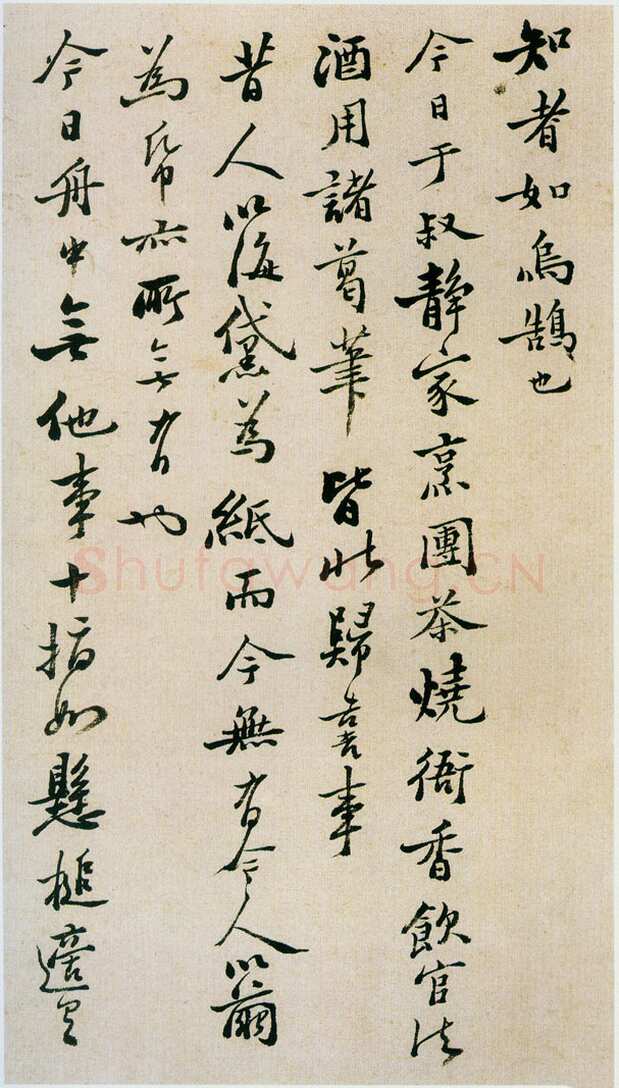 知者如烏鵠也
今日于叔靜家烹團茶燒衙香飲官法
酒用諸葛筆皆北歸喜事
昔人以海黛為紙而今無有今人以繭
為帋亦所無有也
今日舟中無他事十指如懸槌適有
Shufawang.CN